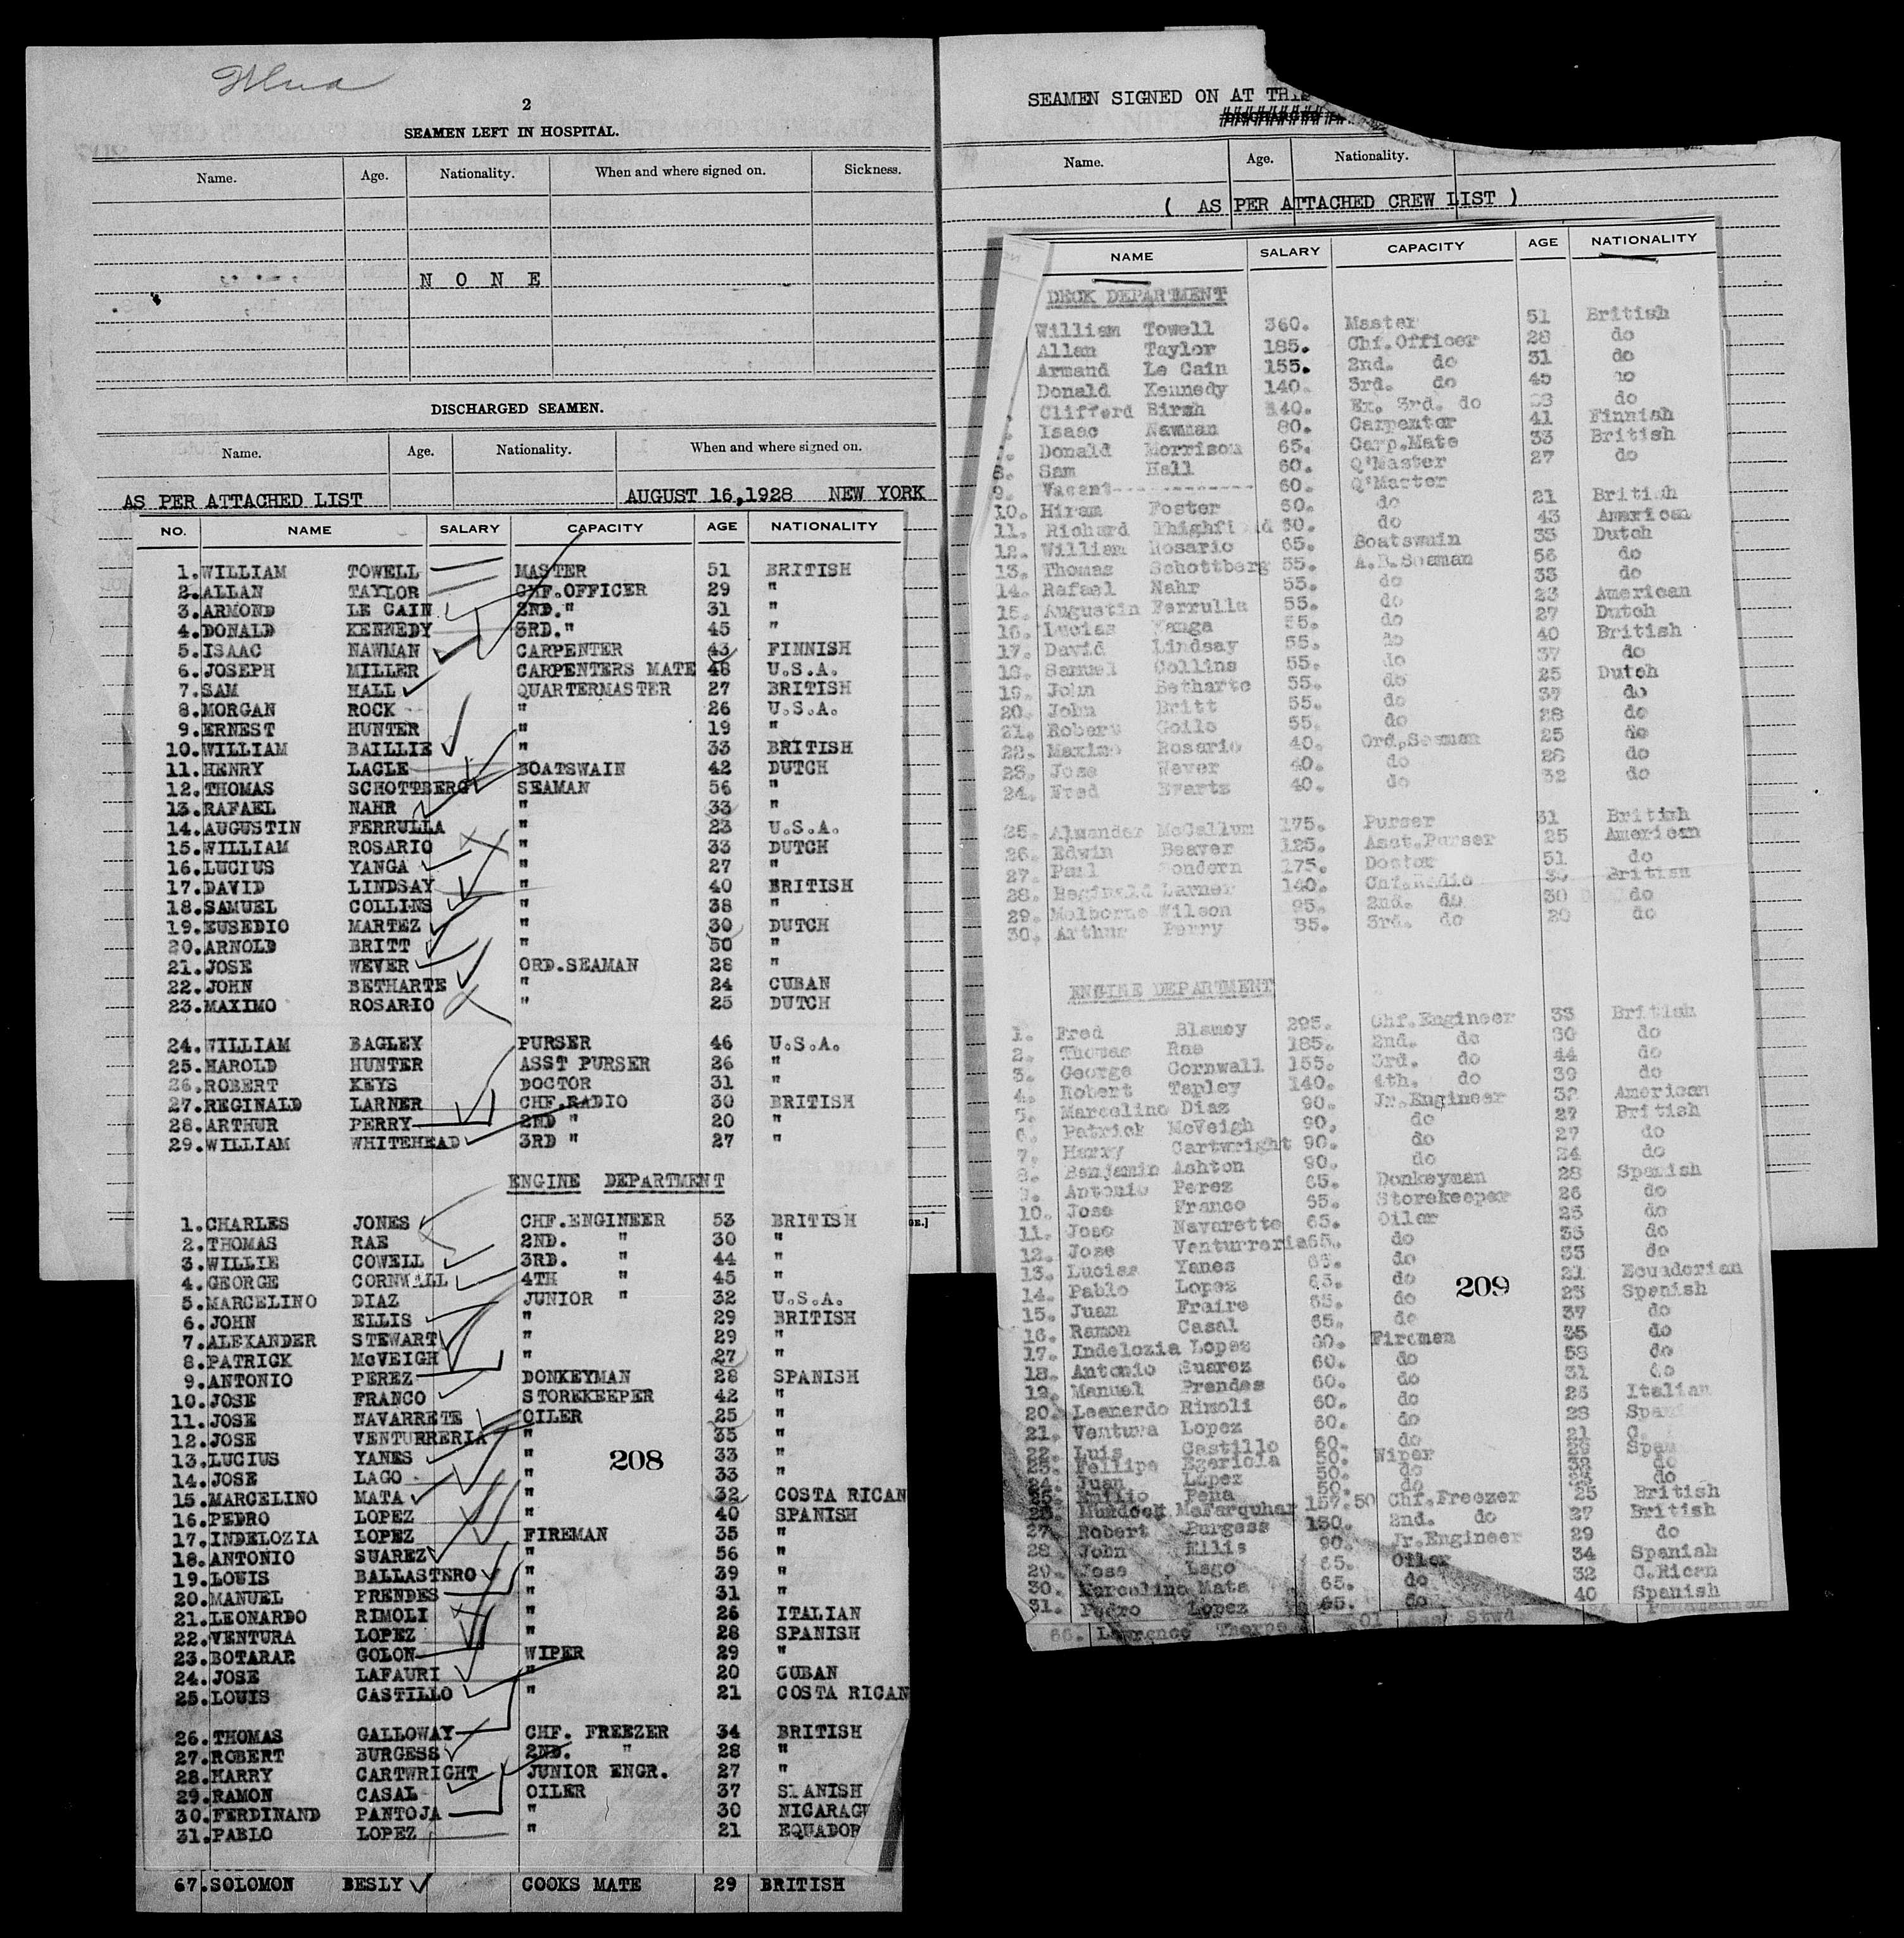 2
SEAMEN LEFT IN HOSPITAL.
Name. Age. Nationality. When and where signed on. Sickness.
N O N E
DISCHARGED SEAMEN.
Name. Age. Nationality. When and where signed on.
AS PER ATTACHED LIST AUGUST 16,1928 NEW YORK
NO. NAME SALARY CAPACITY AGE NATIONALITY
1. WILLIAM TOWELL MASTER 51 BRITISH
2. ALLAN TAYLOR CHF.OFFICER 29 "
3. ARMOND LE CAIN 2ND. " 31 "
4. DONALD KENNEDY 3RD. " 45 "
5. ISAAC NAWMAN CARPENTER 43 FINNISH
6. JOSEPH MILLER CARPENTERS MATE 48 U.S.A.
7. SAM HALL QUARTERMASTER 27 BRITISH
8. MORGAN ROCK " 26 U.S.A.
9. ERNEST HUNTER " 19 "
10. WILLIAM BAILLIE " 33 BRITISH
11. HENRY LAGLE BOATSWAIN 42 DUTCH
12. THOMAS SCHOTTBERG SEAMAN 56 "
13. RAFAEL NAHR " 33 "
14. AUGUSTIN FERRULLA " 23 U.S.A.
15. WILLIAM ROSARIO " 33 DUTCH
16. LUCIUS YANGA " 27 "
17. DAVID LINDSAY " 40 BRITISH
18. SAMUEL COLLINS " 38 "
19. EUSEDIO MARTEZ " 30 DUTCH
20. ARNOLD BRITT " 50 "
21. JOSE WEVER ORD.SEAMAN 28 "
22. JOHN BETHARTE " 24 CUBAN
23. MAXIMO ROSARIO " 25 DUTCH
24. WILLIAM BAGLEY PURSER 46 U.S.A.
25. HAROLD HUNTER ASST PURSER 26 "
26. ROBERT KEYS DOCTOR 31 "
27. REGINALD LARNER CHF.RADIO 30 BRITISH
28. ARTHUR PERRY 2ND " 20 "
29. WILLIAM WHITEHEAD 3RD " 27 "
ENGINE DEPARTMENT
1. CHARLES JONES CHF.ENGINEER 53 BRITISH
2. THOMAS RAE 2ND. " 30 "
3. WILLIE COWELL 3RD. " 44 "
4. GEORGE CORNWALL 4TH " 45 "
5. MARCELINO DIAZ JUNIOR " 32 U.S.A.
6. JOHN ELLIS " 29 BRITISH
7. ALEXANDER STEWART " 29 "
8. PATRICK McVEIGH " 27 "
9. ANTONIO PEREZ DONKEYMAN 28 SPANISH
10. JOSE FRANCO STOREKEEPER 42 "
11. JOSE NAVARRETE OILER 25 "
12. JOSE VENTURRERIA " 35 "
13. LUCIUS YANES " 33 "
14. JOSE LAGO " 33 "
208
15. MARCELINO MATA " 32 COSTA RICAN
16. PEDRO LOPEZ " 40 SPANISH
17. INDELOZIA LOPEZ FIREMAN 35 "
18. ANTONIO SUAREZ " 56 "
19. LOUIS BALLASTERO " 39 "
20. MANUEL PRENDES " 31 "
21. LEONARDO RIMOLI " 26 ITALIAN
22. VENTURA LOPEZ " 28 SPANISH
23. BOTARAR GOLON WIPER 29 "
24. JOSE LAFAURI " 20 CUBAN
25. LOUIS CASTILLO " 21 COSTA RICAN
26. THOMAS GALLOWAY CHF. FREEZER 34 BRITISH
27. ROBERT BURGESS 2ND. " 28 "
28. HARRY CARTWRIGHT JUNIOR ENGR. 27 "
29. RAMON CASAL OILER 37 SPANISH
30. FERDINAND PANTOJA " 30 NICARAGU
31. PABLO LOPEZ " 21 EQUADOR
67. SOLOMON BESLY COOKS MATE 29 BRITISH
SEAMEN SIGNED ON AT THIS
Name. Age. Nationality.
( AS PER ATTACHED CREW LIST )
NAME SALARY CAPACITY AGE NATIONALITY
DECK DEPARTMENT
William Towell 360. Master 51 British
Allan Taylor 185. Chf.Officer 28 do
Armand Le Cain 155. 2nd. do 31 do
Donald Kennedy 140. 3rd. do 45 do
Clifford Birch 140. Ex. 3rd. do do
Isaac Nawman 80. Carpenter 41 Finnish
7. Donald Morrison 65. Carp.Mate 33 British
8. Sam Hall 60. Q'Master 27 do
9. Vacant------------- 60. Q'Master
10. Hiram Foster 60. do 21 British
11. Richard 60. do 43 American
12. William Rosario 65. Boatswain 33 Dutch
13. Thomas Schottberg 55. A.B.Seaman 56 do
14. Rafael Nahr 55. do 33 do
15. Augustin Ferrulla 55. do 23 American
16. Lucius Yanga 55. do 27 Dutch
17. David Lindsay 55. do 40 British
18. Samuel Collins 55. do 37 do
19. John Betharte 55. do 25 Dutch
20. John Britt 55. do 37 do
21. Robert Goilo 55. do 28 do
22. Maximo Rosario 40. Ord.Seaman 25 do
23. Jose Wever 40. do 28 do
24. Fred Evartz 40. do 32 do
25. Alexander McCallum 175. Purser 31 British
26. Edwin Beaver 125. Asst.Purser 25 American
27. Paul Sondern 175. Doctor 51 do
28. Reginald Larner 140. Chf.Radio 30 British
29. Melborne Wilson 95. 2nd. do 30 do
30. Arthur Perry 85. 3rd. do 20 do
ENGINE DEPARTMENT
1. Fred Blamey 295. Chf.Engineer 33 British
2. Thomas Rae 185. 2nd. do 30 do
3. George Cornwall 155. 3rd. do 44 do
4. Robert Tapley 140. 4th. do 39 do
5. Marcelino Diaz 90. Jr.Engineer 32 American
6. Patrick McVeigh 90. do 27 British
7. Harry Cartwright 90. do 27 do
8. Benjamin Ashton 90. do 24 do
9. Antonio Perez 65. Donkeyman 28 Spanish
10. Jose Franco 65. Storekeeper 26 do
11. Jose Navarette 65. Oiler 25 do
12. Jose Venturreria 65. do 35 do
13. Lucias Yanes 65. do 33 do
14. Pablo Lopez 65. do 21 Ecuadorian
209
15. Juan Fraire 65. do 25 Spanish
16. Ramon Casal 65. do 37 do
17. Indelozia Lopez 60. Fireman 35 do
18. Antonio Suarez 60. do 58 do
19. Manuel Prendes 60. do 31 do
20. Leonardo Rimoli 60. do 25 Italian
21. Ventura Lopez 60. do 28 Span
22. Luis Castillo 60. do 21 C.
23. Fellipe Egeriola 50. Wiper Span
24. Juan Lopez 50. do do
25. Emilio Pena 50. do do
26. Murdoch McFarquhar 157.50 Chf.Freezer 25 British
27. Robert Purgess 130. 2nd. do 27 British
28 John Ellis 90. Jr.Engineer 29 do
29. Jose Lago 65. Oiler 34 Spanish
30. Marcelino Mata 65. do 32 C.Rican
31. Pedro Lopez 65. do 40 Spanish
66. Lawrence Thorpe Asst Stwd. Panamanian